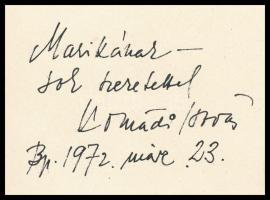 Marikának –
sok szeretettel
Komádi István
Bp. 1972. márc. 23.